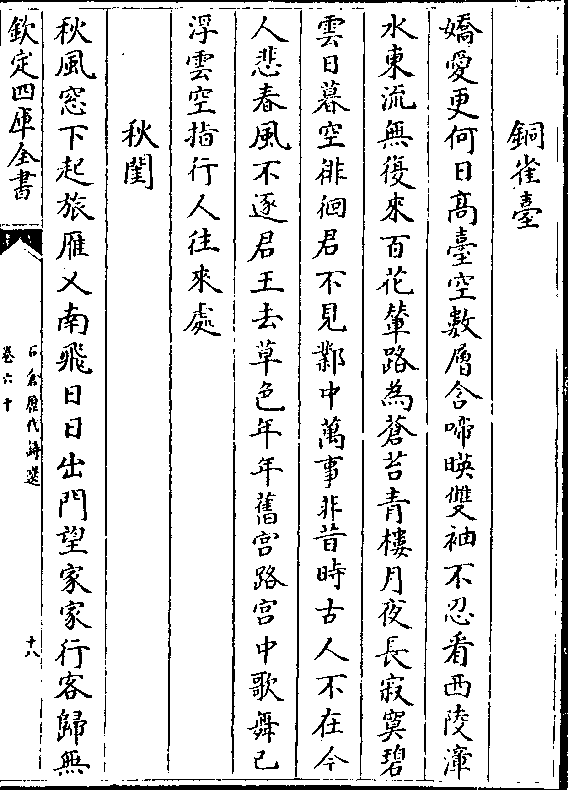 銅雀臺
嬌愛更何日髙臺空數層含啼暎雙袖不忍看西陵漳
水東流無復来百花輦路為蒼苔青樓月夜長寂寞碧
雲日暮空徘徊君不見鄴中萬事非昔時古人不在今
人悲春風不逐君王去草色年年舊宫路宫中歌舞已
浮雲空指行人往來處
秋閨
秋風窓下起旅雁又南飛日日出門望家家行客歸無
欽定四庫全書
石倉歴代詩選
卷六十
十八